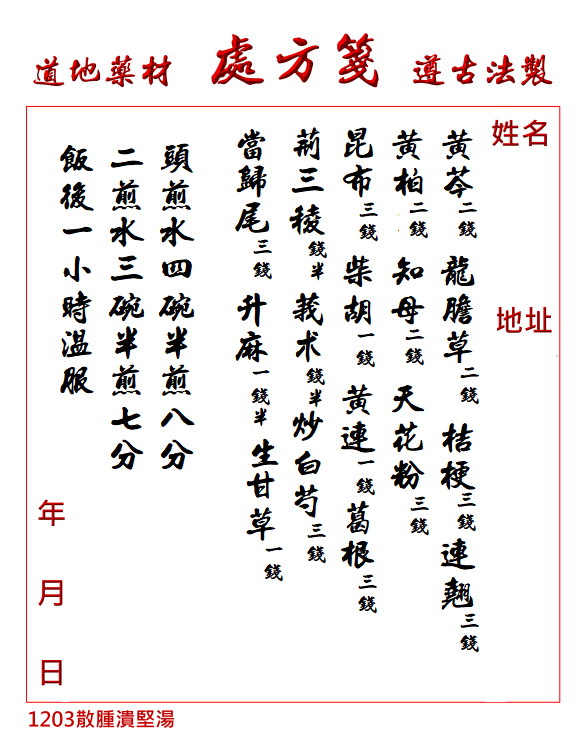 道地藥材 處方箋 遵古法製
姓名
地址
黃芩二錢 龍膽草二錢 桔梗三錢 連翹三錢
黃柏二錢 知母二錢 天花粉三錢
昆布三錢 柴胡一錢 黃連一錢 葛根三錢
荊三稜錢半 莪术錢半 炒白芍三錢
當歸尾三錢 升麻一錢半 生甘草一錢
頭煎水四碗半煎八分
二煎水三碗半煎七分
飯後一小時溫服
年 月 日
1203散腫潰堅湯